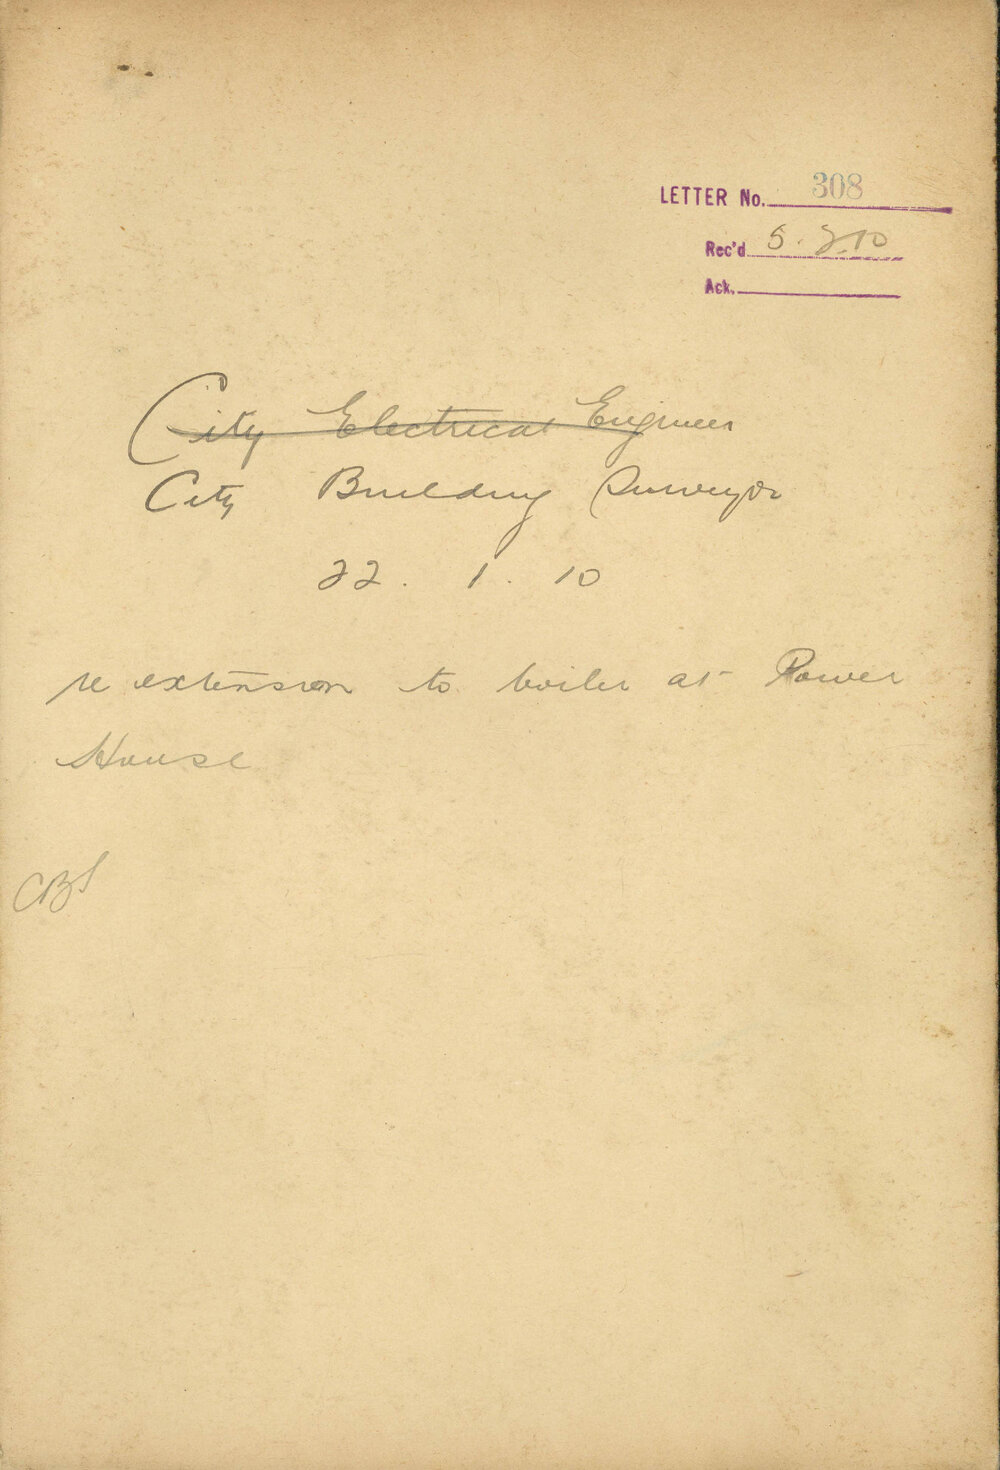 LETTER No. 308
Rec'd 5.2.10
Ack.
City Electrical Engineer
City Building Surveyor
22.1.10
re extension to boiler at Power
House
CBS